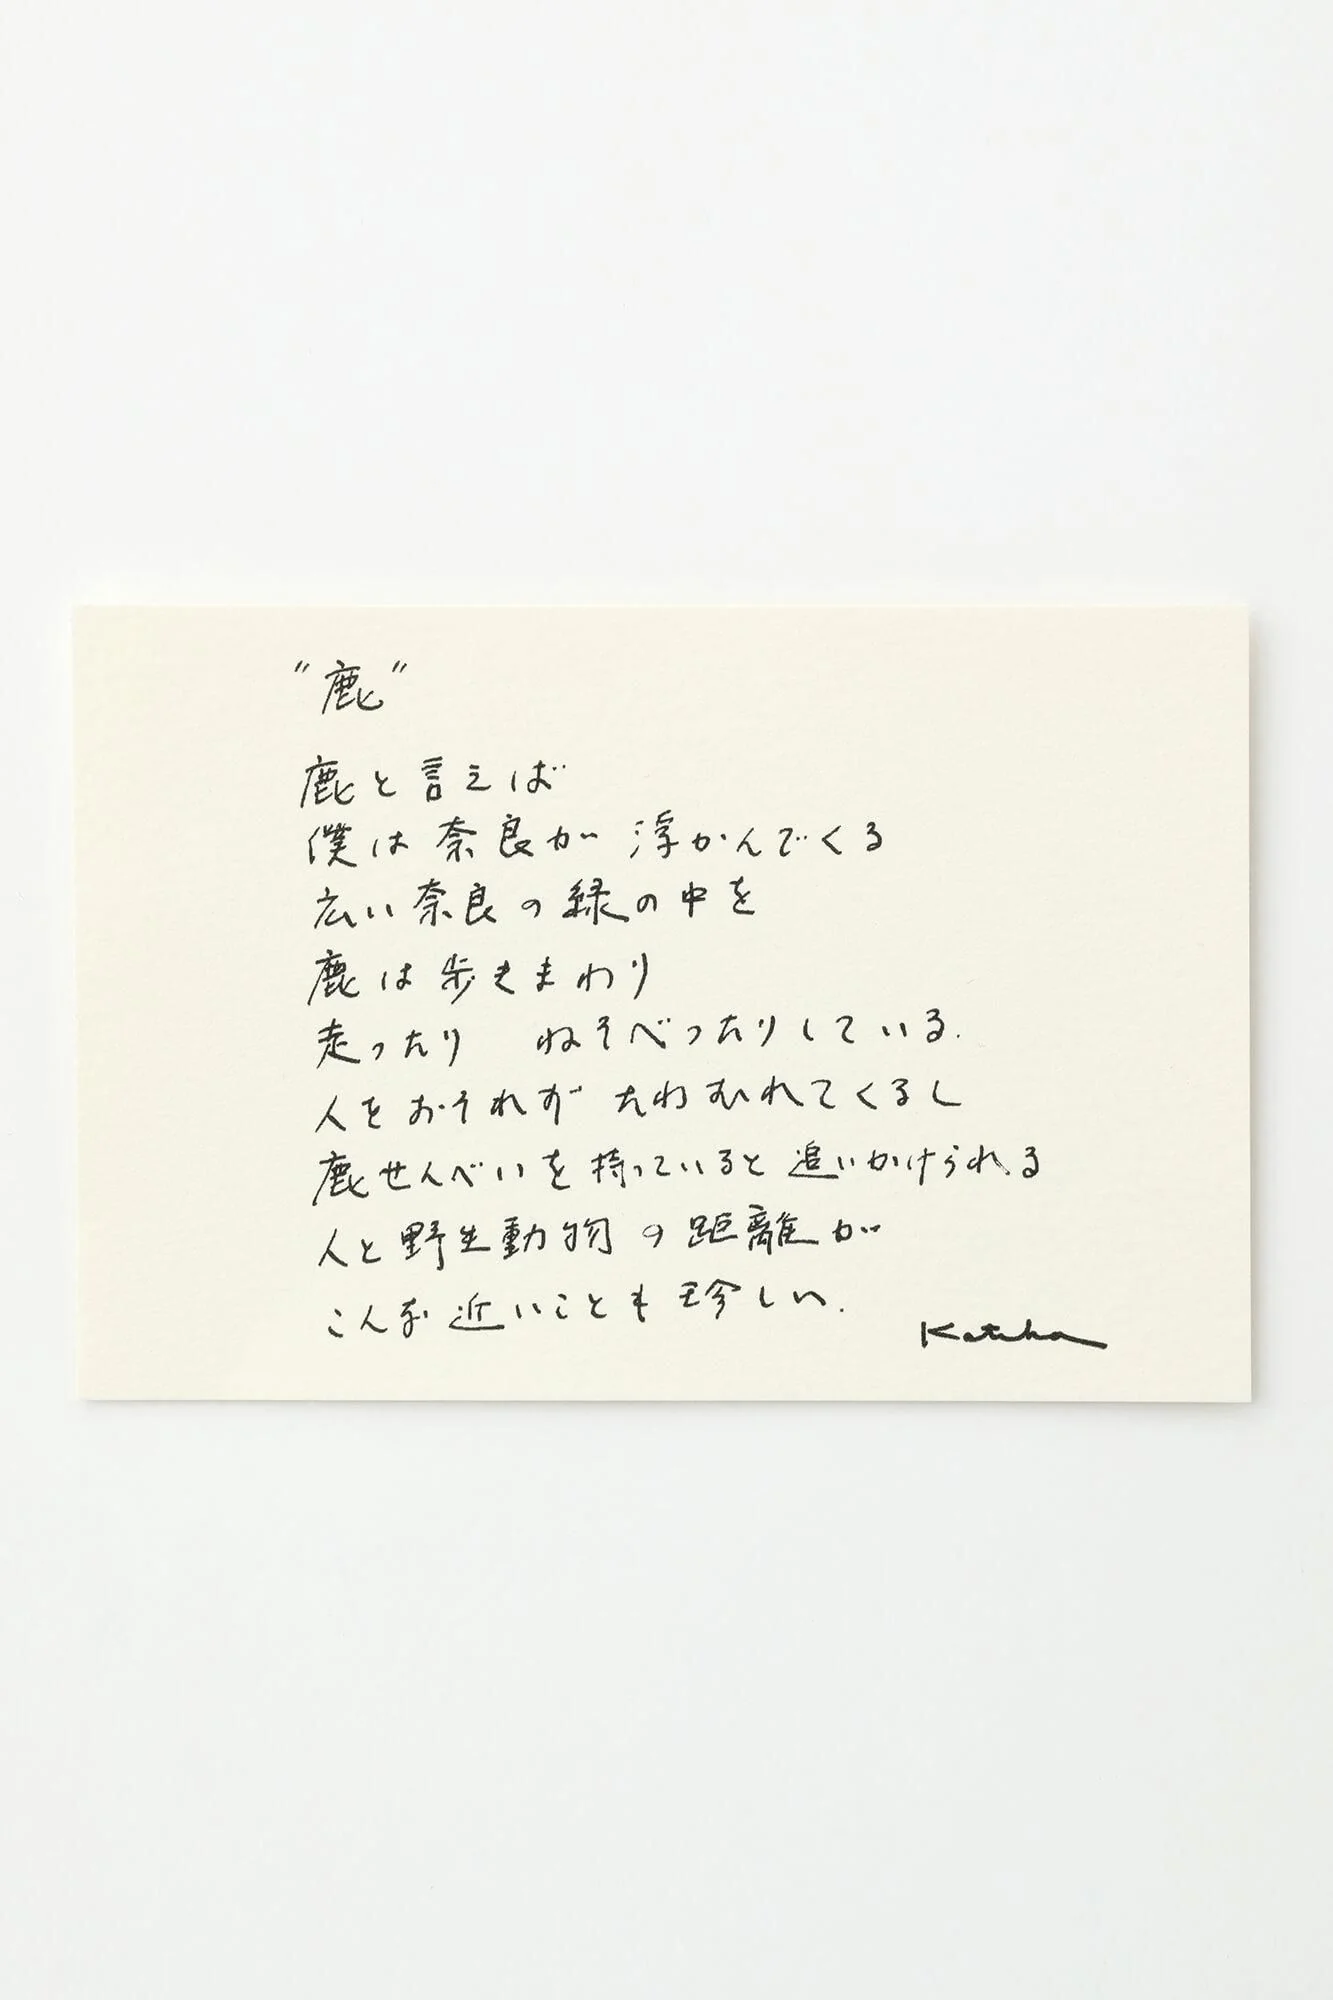 "鹿"
鹿と言えば
僕は奈良が 浮かんでくる
広い奈良の緑の中を
鹿は歩きまわり
走ったり ねそべったりしている.
人をおそれず たわむれてくるし
鹿せんべいを持っていると追いかけられる
人と野生動物の距離が
こんな近いことも珍しい.